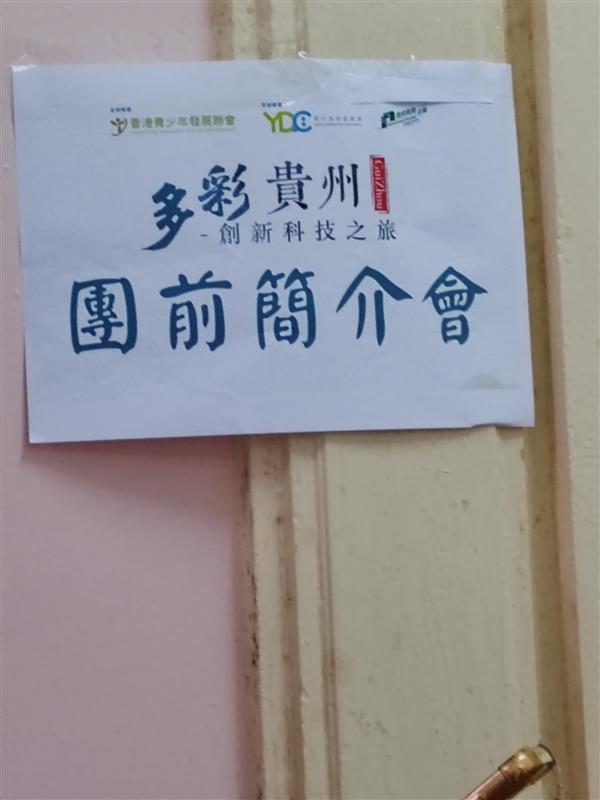 香港青少年發展聯會
YDC
多彩貴州 GuiZhou
-創新科技之旅
團前簡介會